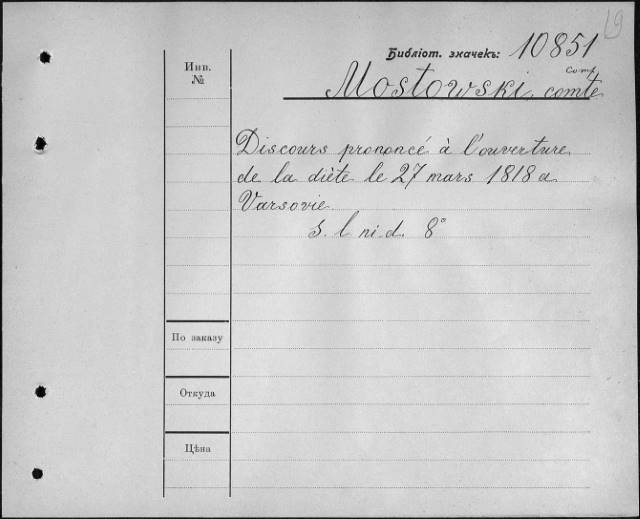 19
Библіот. значекъ: 10851
Comp.
Mostowski, comte
Инв.
№
Discours prononcé à l'ouverture
de la diète le 27 mars 1818 a
Varsovie
S. l ni d. 8°
По заказу
Откуда
Цѣна